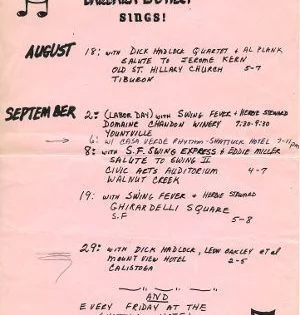 SINGS!
AUGUST 18: WITH DICK HADLOCK QUARTET & AL PLANK
SALUTE TO JEROME KERN
OLD ST. HILLARY CHURCH 5-7
TIBURON
SEPTEMBER 2: (LABOR DAY) WITH SWING FEVER & HERBIE STEWARD
DOMAINE CHANDON WINERY 7:30-9:30
YOUNTVILLE
6: W/ CASA VERDE RHYTHM - SHATTUCK HOTEL 7-11pm
8: WITH S.F. SWING EXPRESS & EDDIE MILLER
SALUTE TO SWING II
CIVIC ARTS AUDITORIUM 4-7
WALNUT CREEK
19: WITH SWING FEVER & HERBIE STEWARD
GHIRARDELLI SQUARE
S.F 5-8
29: WITH DICK HADLOCK, LEON OAKLEY et al
MOUNT VIEW HOTEL 2-5
CALISTOGA
AND
EVERY FRIDAY AT THE